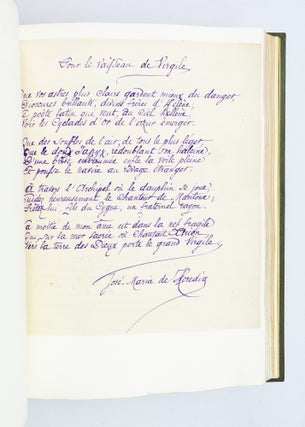 Pour le Vaisseau de Virgile
Que vos astres plus clairs gardent mieux du danger,
Dioscures brillants, divins frères d'Hélène,
Le poète latin qui veut, au ciel hellène,
Voir les Cyclades d'or de l'azur émerger.
Que des souffles de l'air, de tous le plus léger,
Que le doux Iapyx, redoublant son haleine,
D'une brise embaumée enfle la voile pleine
Et pousse le navire au rivage étranger.
À travers l'Archipel où le dauphin se joue,
Guidez heureusement le chanteur de Mantoue;
Prêtez-lui, fils du Cygne, un fraternel rayon.
La moitié de mon âme est dans la nef fragile
Qui, sur la mer sacrée où chantait Arion,
Vers la terre des Dieux porte le grand Virgile.
José-Maria de Heredia